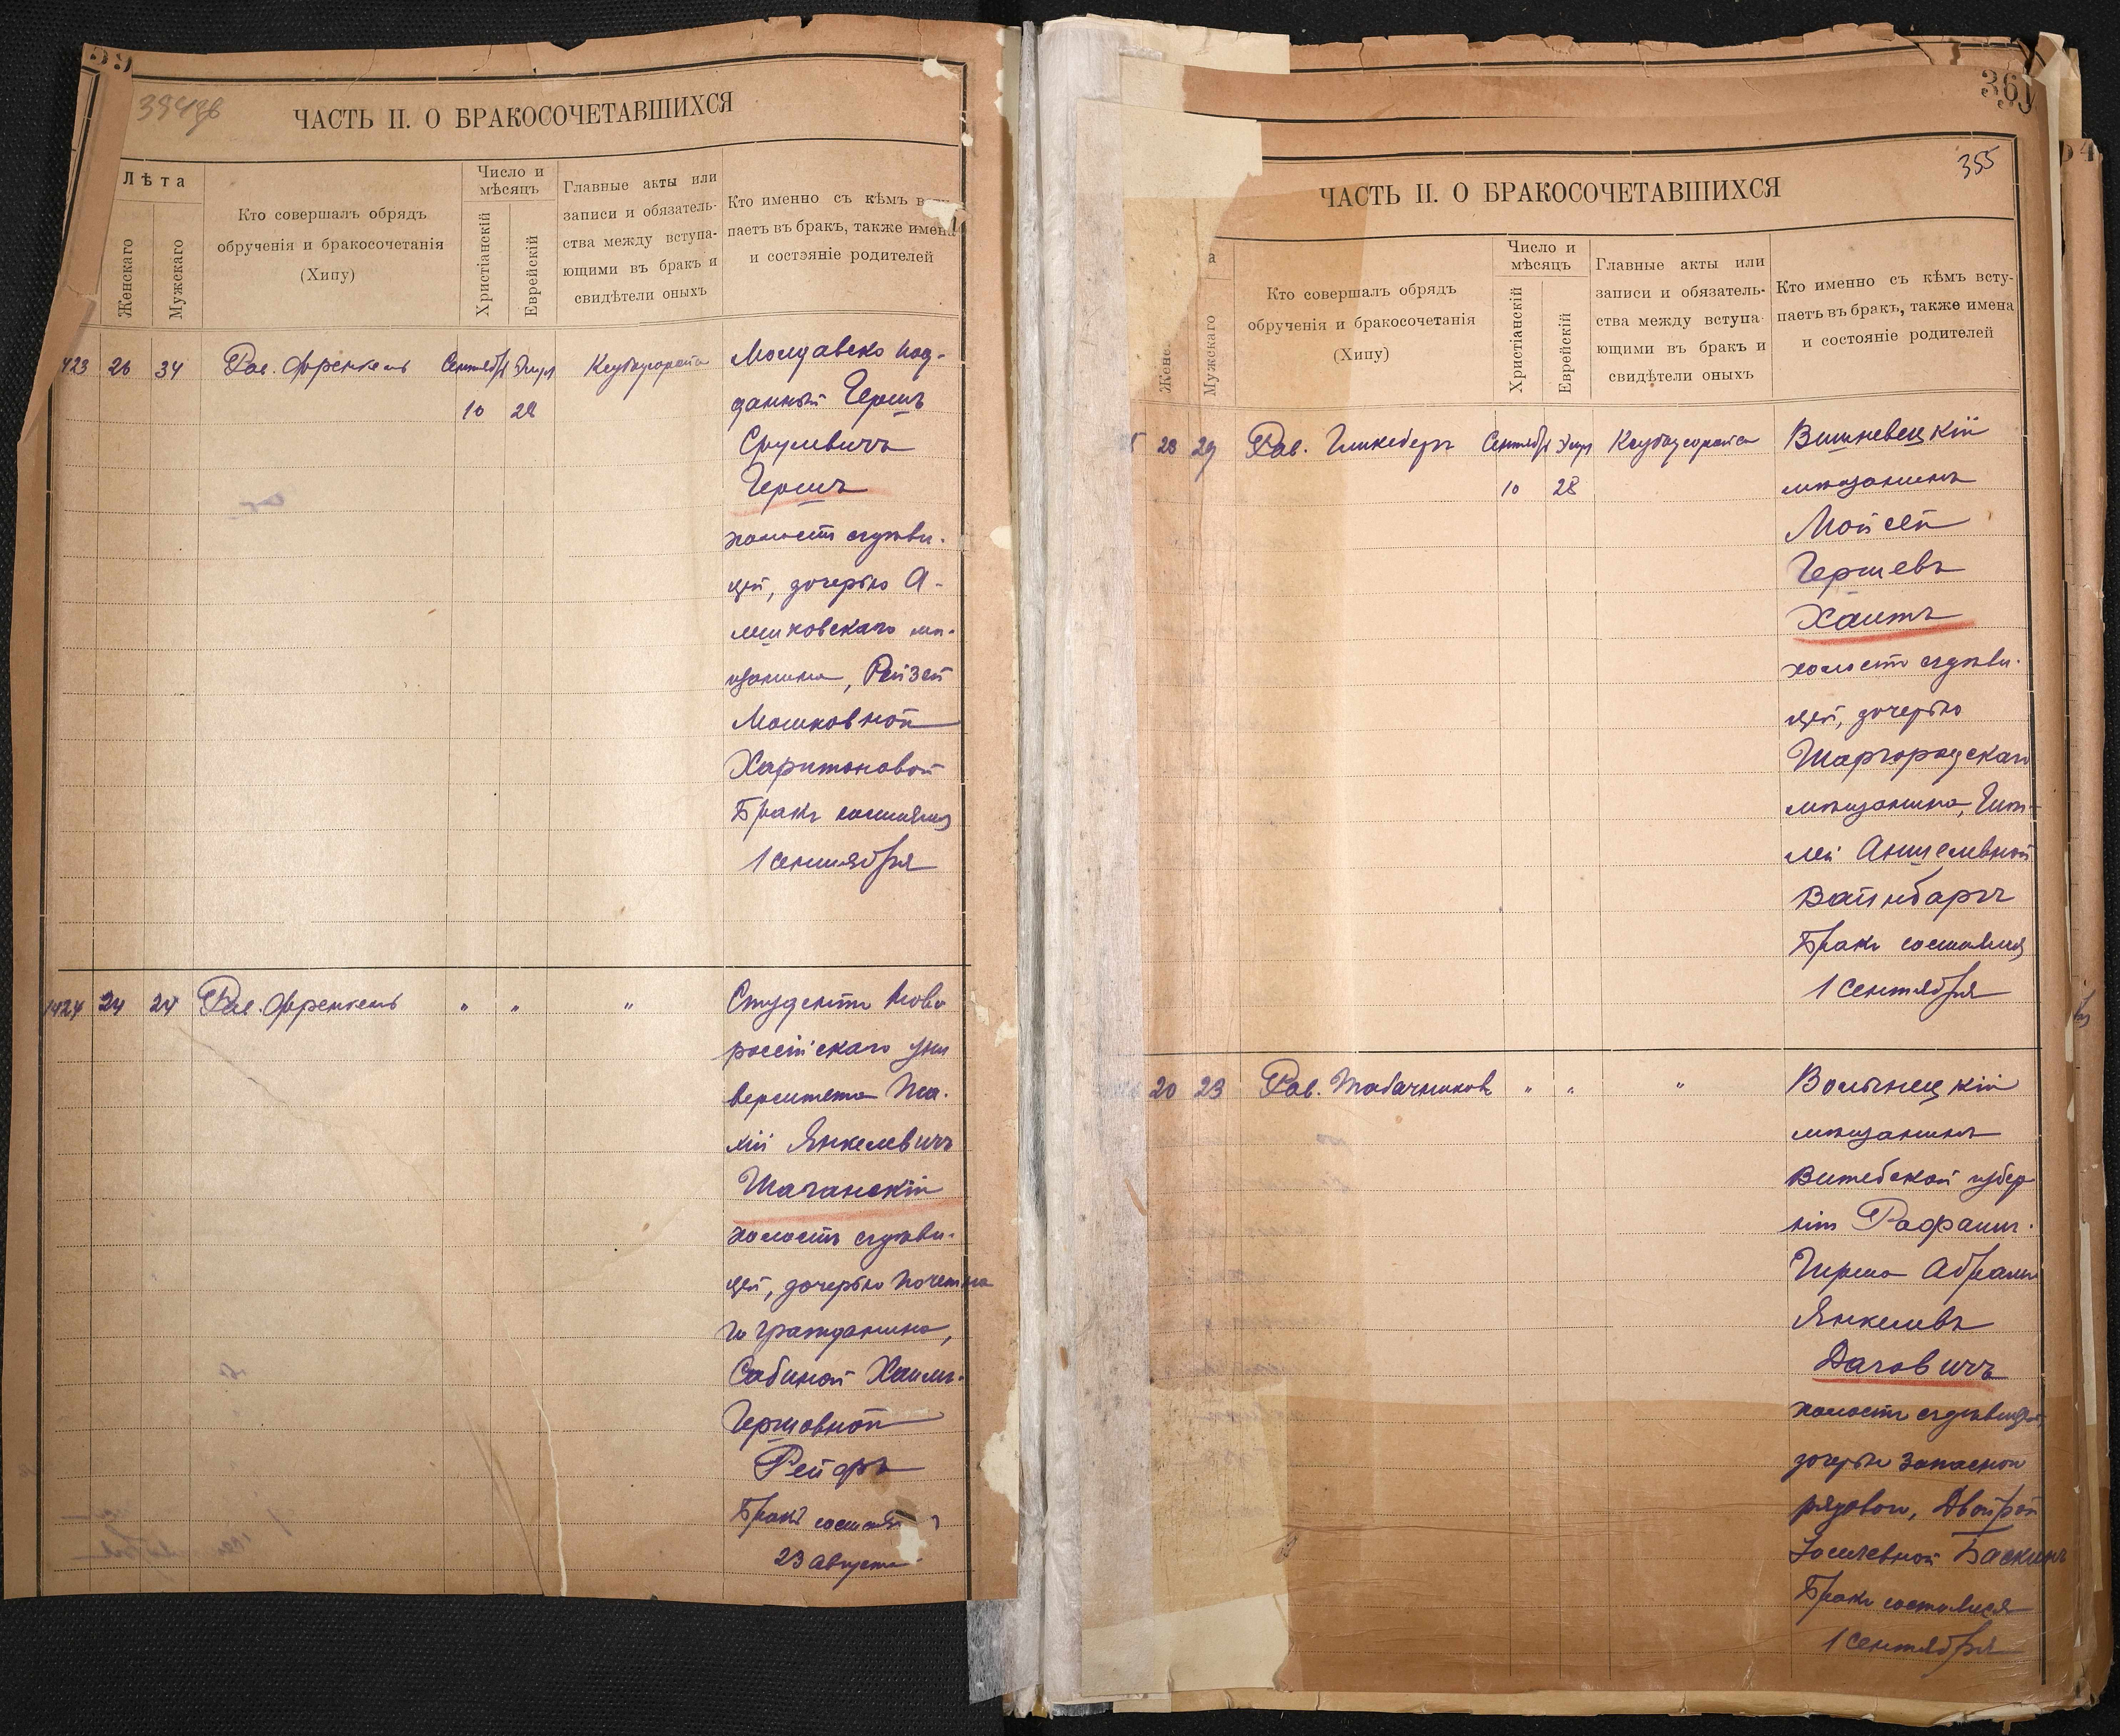 ЧАСТЬ II. О БРАКОСОЧЕТАВШИХСЯ
Лѣта
Женскаго
Мужскаго
Кто совершалъ обрядъ
обрученія и бракосочетанія
(Хипу)
Число и
мѣсяцъ
Христіанскій
Еврейскій
Главные акты или
записи и обязатель-
ства между вступа-
ющими въ бракъ и
свидѣтели оныхъ
Кто именно съ кѣмъ
паетъ въ бракъ, также имена
и состояніе родителей
423 26 34 Рав. Френкель Сентябр
10 28
Молдавско под-
данный Гершъ
Срулевичъ
Гершъ
холостъ съ дѣви-
цей, дочерью
мѣ-
щанина, Рейзей
Мошковной
Харитоновой
Бракъ состоялся
1 Сентября
1424 24 24 Рав. Френкель " " "
Студентъ Ново
россійскаго уни
верситета
Янкелевичъ
Шаганскій
холостъ съ дѣви-
цей, дочерью почетна
го гражданина,
Сабиной Хаимъ-
Гершовной
Рейфъ
Бракъ
23 Августа
361
355
ЧАСТЬ II. О БРАКОСОЧЕТАВШИХСЯ
а
Мужскаго
Кто совершалъ обрядъ
обрученія и бракосочетанія
(Хипу)
Число и
мѣсяцъ
Христіанскій
Еврейскій
Главные акты или
записи и обязатель-
ства между вступа-
ющими въ бракъ и
свидѣтели оныхъ
Кто именно съ кѣмъ всту-
паетъ въ бракъ, также имена
и состояніе родителей
5 28 29 Рав. Сентябр
10 28
Вишневецкій
мѣщанинъ
Мойсей
Гершевъ
Хаитъ
холостъ съ дѣви-
цей, дочерью
Шаргородскаго
мѣщанина,
Аншелевной
Вайнбаргъ
Бракъ состоялся
1 Сентября
20 23 Рав. Табачниковъ " " "
Волынецкій
мѣщанинъ
Витебской губер
ніи Рафаилъ-
Абрамъ
Янкелевъ
Даговичъ
холостъ съ дѣвицей,
дочерью
Двойрой
Баскинъ
Бракъ состоялся
1 Сентября